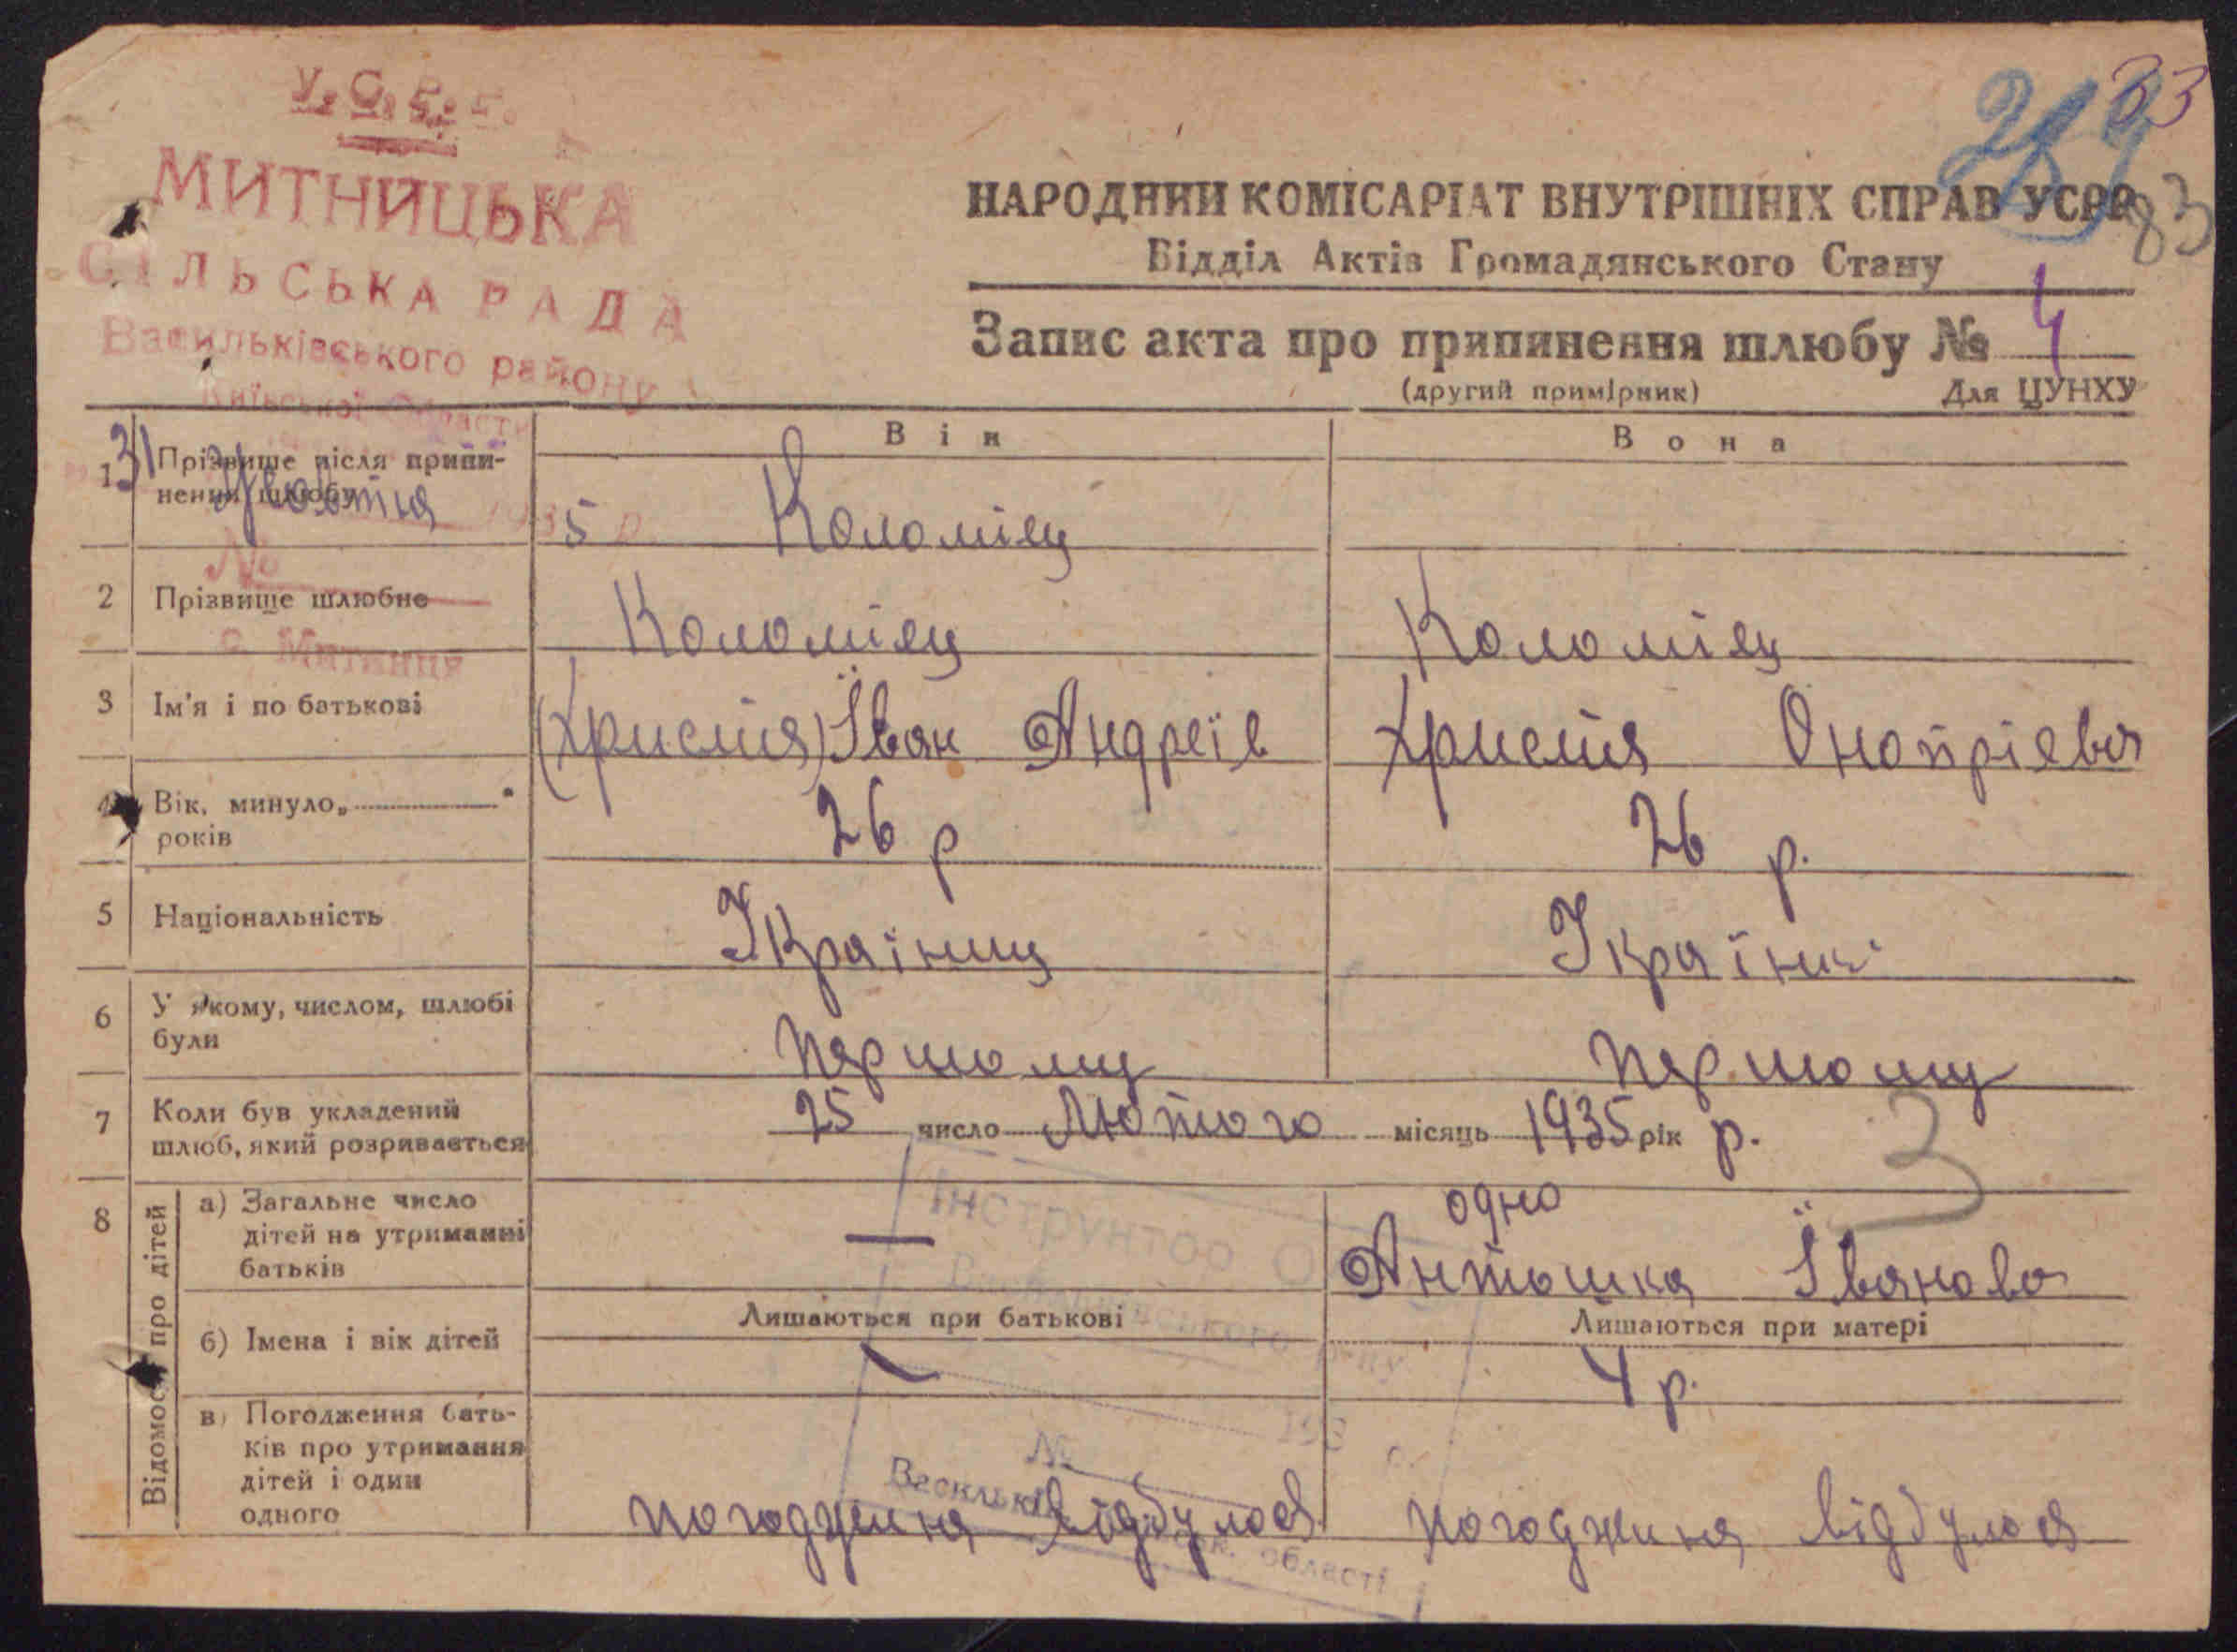 У.С.Р.Р.
МИТНИЦЬКА
СІЛЬСЬКА РАДА
Васильківського району
Київської Області
31
5 р.
№
с. Митниця
33
83
НАРОДНИЙ КОМІСАРІАТ ВНУТРІШНІХ СПРАВ УСРР
Відділ Актів Громадянського Стану
Запис акта про припинення шлюбу № 4
(другий примірник) Для ЦУНХУ
Він Вона
1 Прізвище після припи-
нення шлюбу Коломієц
2 Прізвище шлюбне Коломієц Коломієц
3 Ім'я і по батькові (Христя) Іван Андреїв Христя Онопрієва
4 Вік, минуло „ “ 26 р 26 р.
років
5 Національність Україниц Україн
6 У якому, числом, шлюбі
були першому першому
7 Коли був укладений
шлюб, який розривається 25 число Лютого місяць 1935 рік р.
3
8 Відомості про дітей
а) Загальне число
дітей на утриманні
батьків — одно
Антошка Іванова
Лишаються при батькові Лишаються при матері
б) Імена і вік дітей — 4 р.
в) Погодження бать-
ків про утримання
дітей і один
одного погодженя відбулося погодженя відбулося
Інструктор
№
області